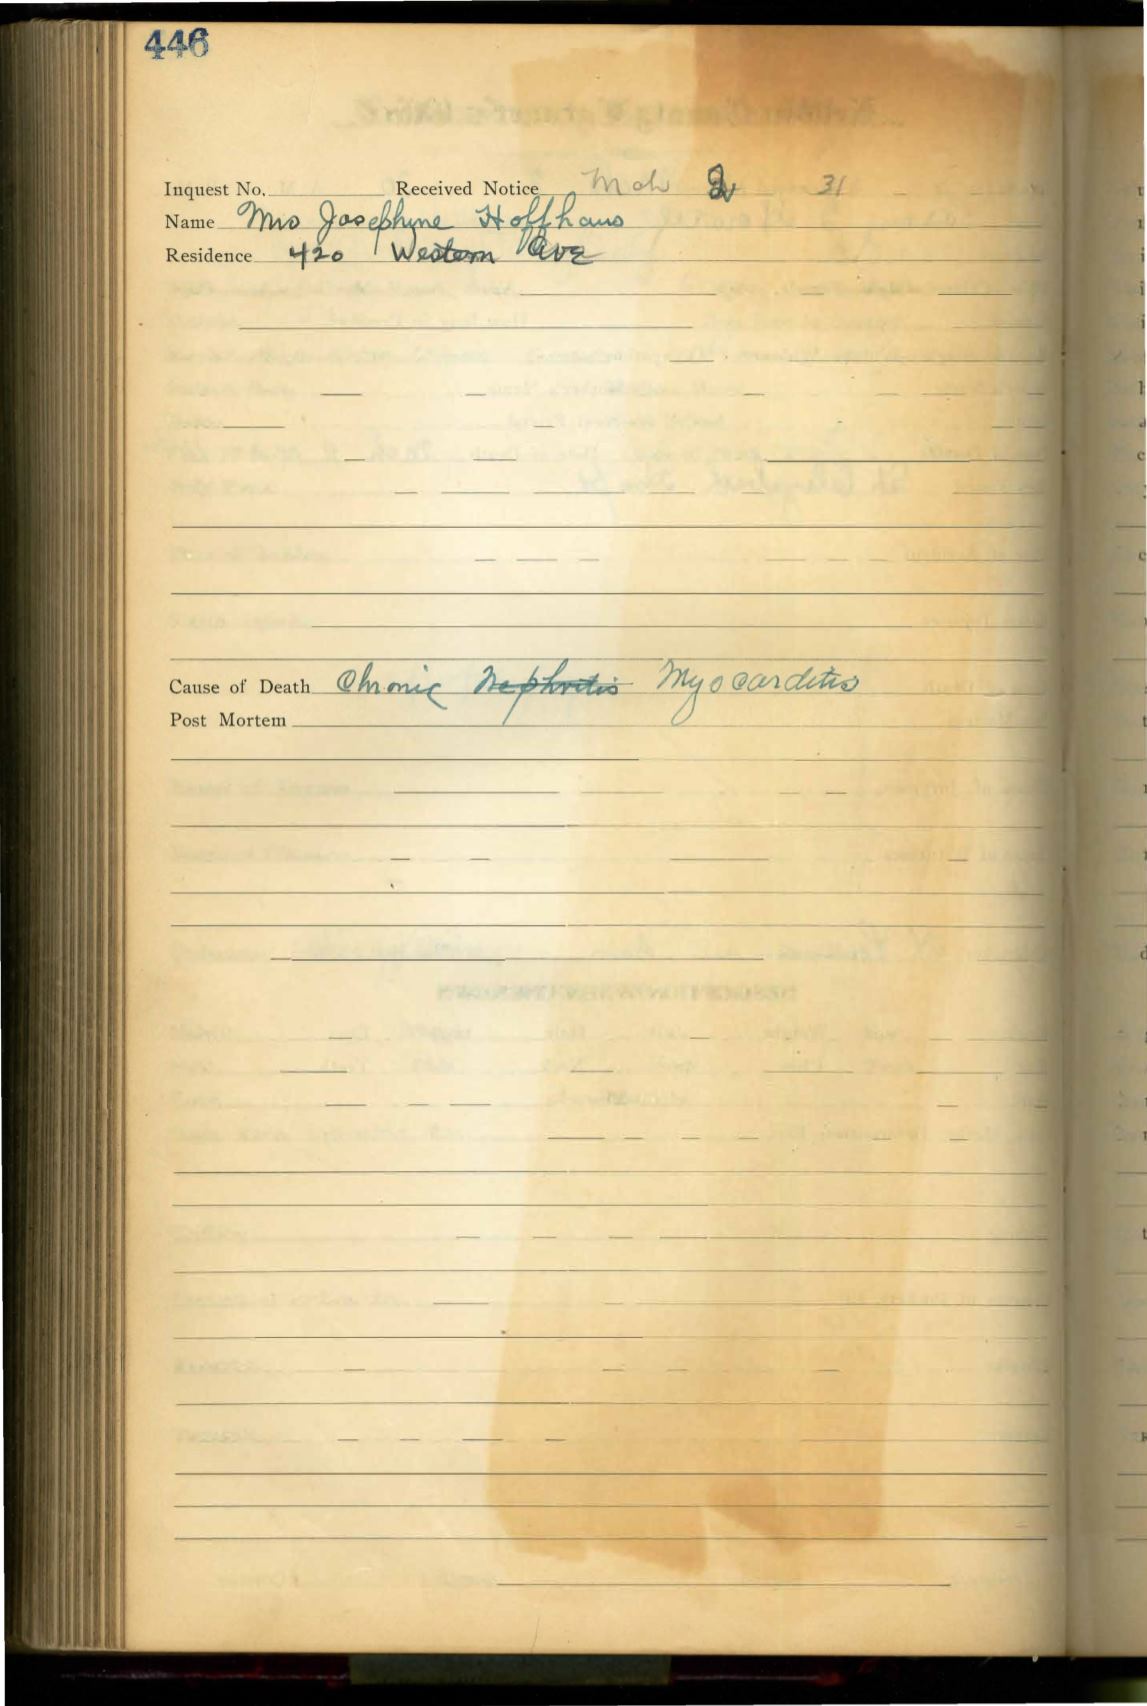 446
Inquest No. Received Notice Mch 2 31
Name Mrs Josephyne Hoffhaus
Residence 420 Western Ave
Cause of Death Chronic Nephritis Myocarditis
Post Mortem